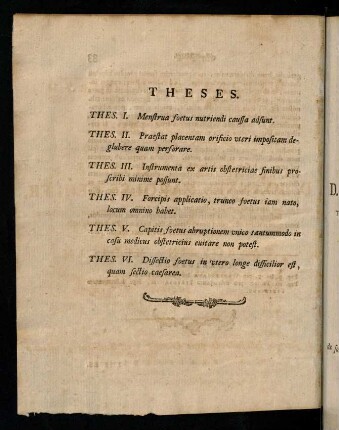 THESES.
THES. I. Menstrua foetus nutriendi caussa adsunt.
THES. II. Praestat placentam orificio vteri impositam de-
glubere quam perforare.
THES. III. Instrumenta ex artis obstetriciae finibus pro-
scribi minime possunt.
THES. IV. Forcipis applicatio, trunco foetus iam nato,
locum omnino habet.
THES. V. Capitis foetus abruptionem vnico tantummodo in
casu medicus obstetricius euitare non potest.
THES. VI. Dissectio foetus in vtero longe difficilior est,
quam sectio caesarea.
D.